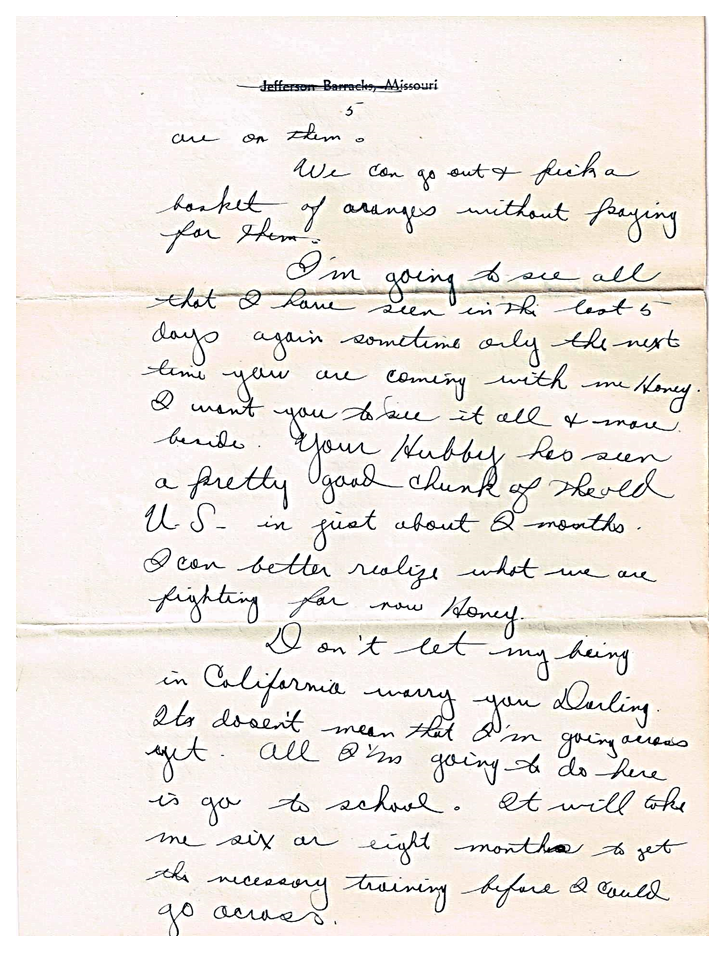 Jefferson Barracks, Missouri
5
are on them.
We can go out & pick a
basket of oranges without paying
for them.
I'm going to see all
that I have seen in the last 5
days again sometime only the next
time you are coming with me Honey.
I want you to see it all & more
beside. Your Hubby has seen
a pretty good chunk of the old
U.S. in just about 2 months.
I can better realize what we are
fighting for now Honey.
Don't let my being
in California worry you Darling.
Its doesn't mean that I'm going across
yet. All I'm going to do here
is go to school. It will take
me six or eight months to get
the necessary training before I could
go across.